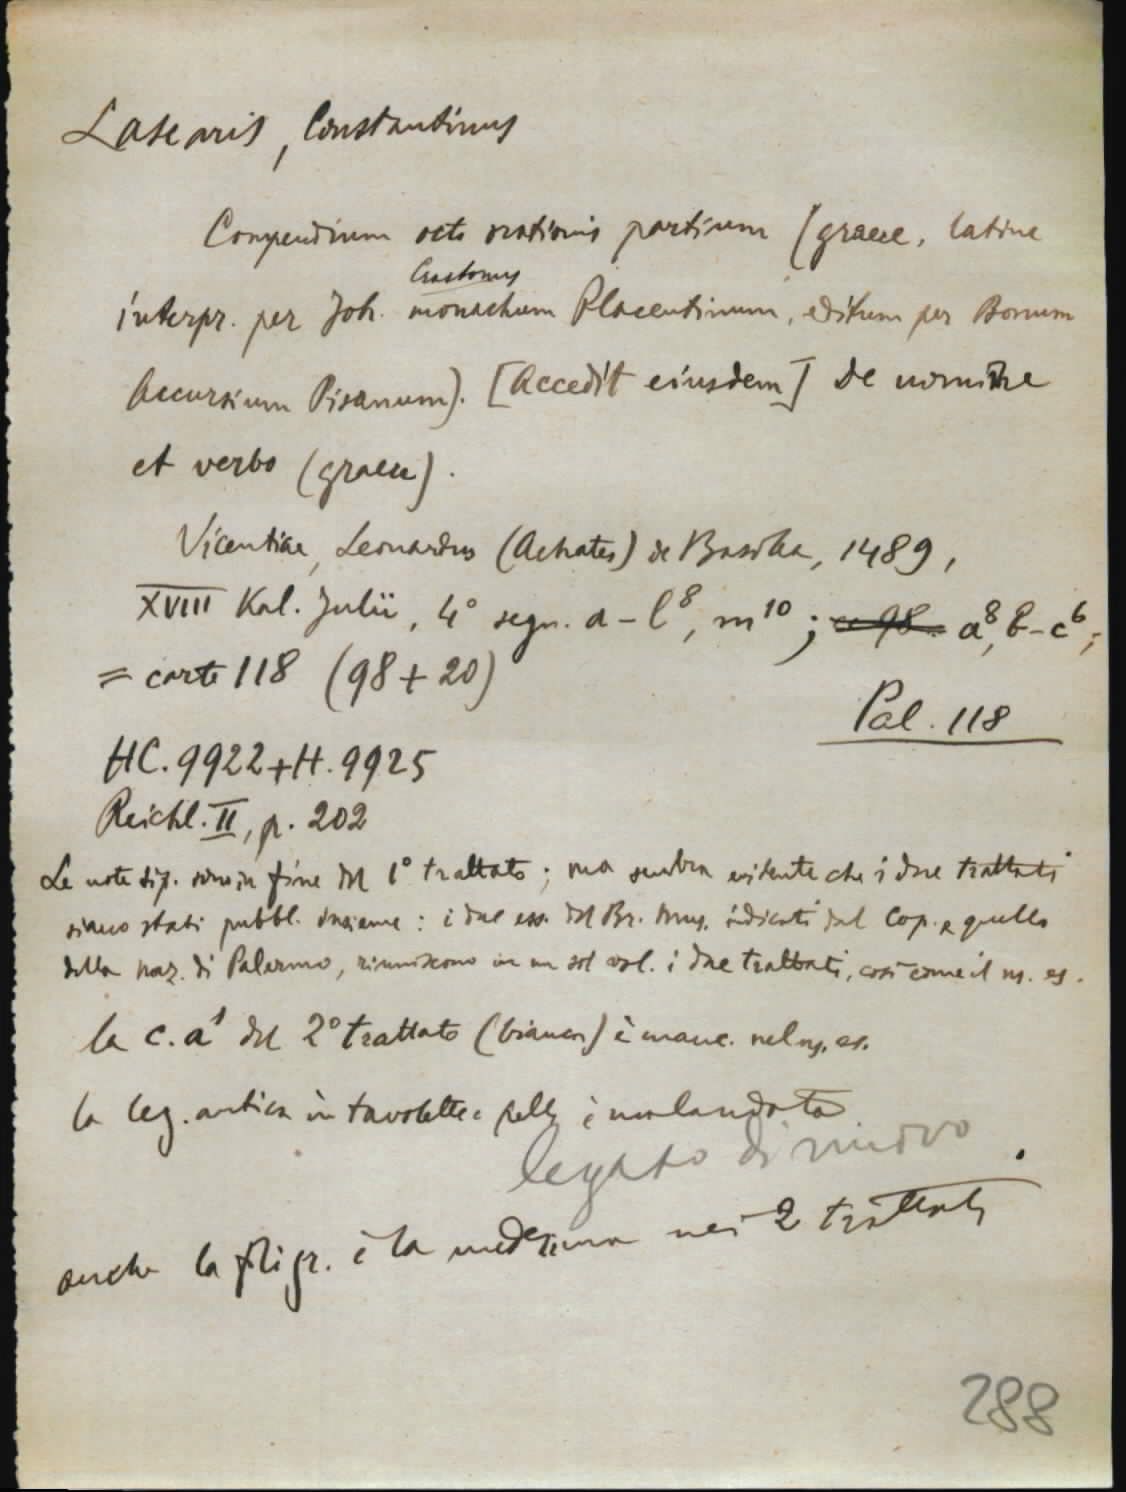 Lascaris, Constantinus
Compendium octo orationis partium (graece, latine
Crastonus
interpr. per Joh. monachum Placentinum, editum per Bonum
Accursium Pisanum). [Accedit eiusdem] De nomine
et verbo (graece).
Vicentiae, Leonardus (Achates) de Basilea, 1489,
XVIII Kal. Julii, 4° segn. a-l⁸, m¹⁰; c. 98. a⁸, b-c⁶;
= carte 118 (98+20)
Pal. 118
HC. 9922+H. 9925
Reichl. II, p. 202
Le note tip. sono in fine del 1° trattato; ma sembra evidente che i due trattati
siano stati pubbl. insieme: i due es. del Br. Mus. indicati dal Cop. e quello
della Naz. di Palermo, riuniscono in un sol vol. i due trattati, così come il ns. es.
la c. a¹ del 2° trattato (bianca) è manc. nel ns. es.
la leg. antica in tavolette e pelle è malandata
legato di nuovo
anche la filigr. è la medesima nei 2 trattati
288